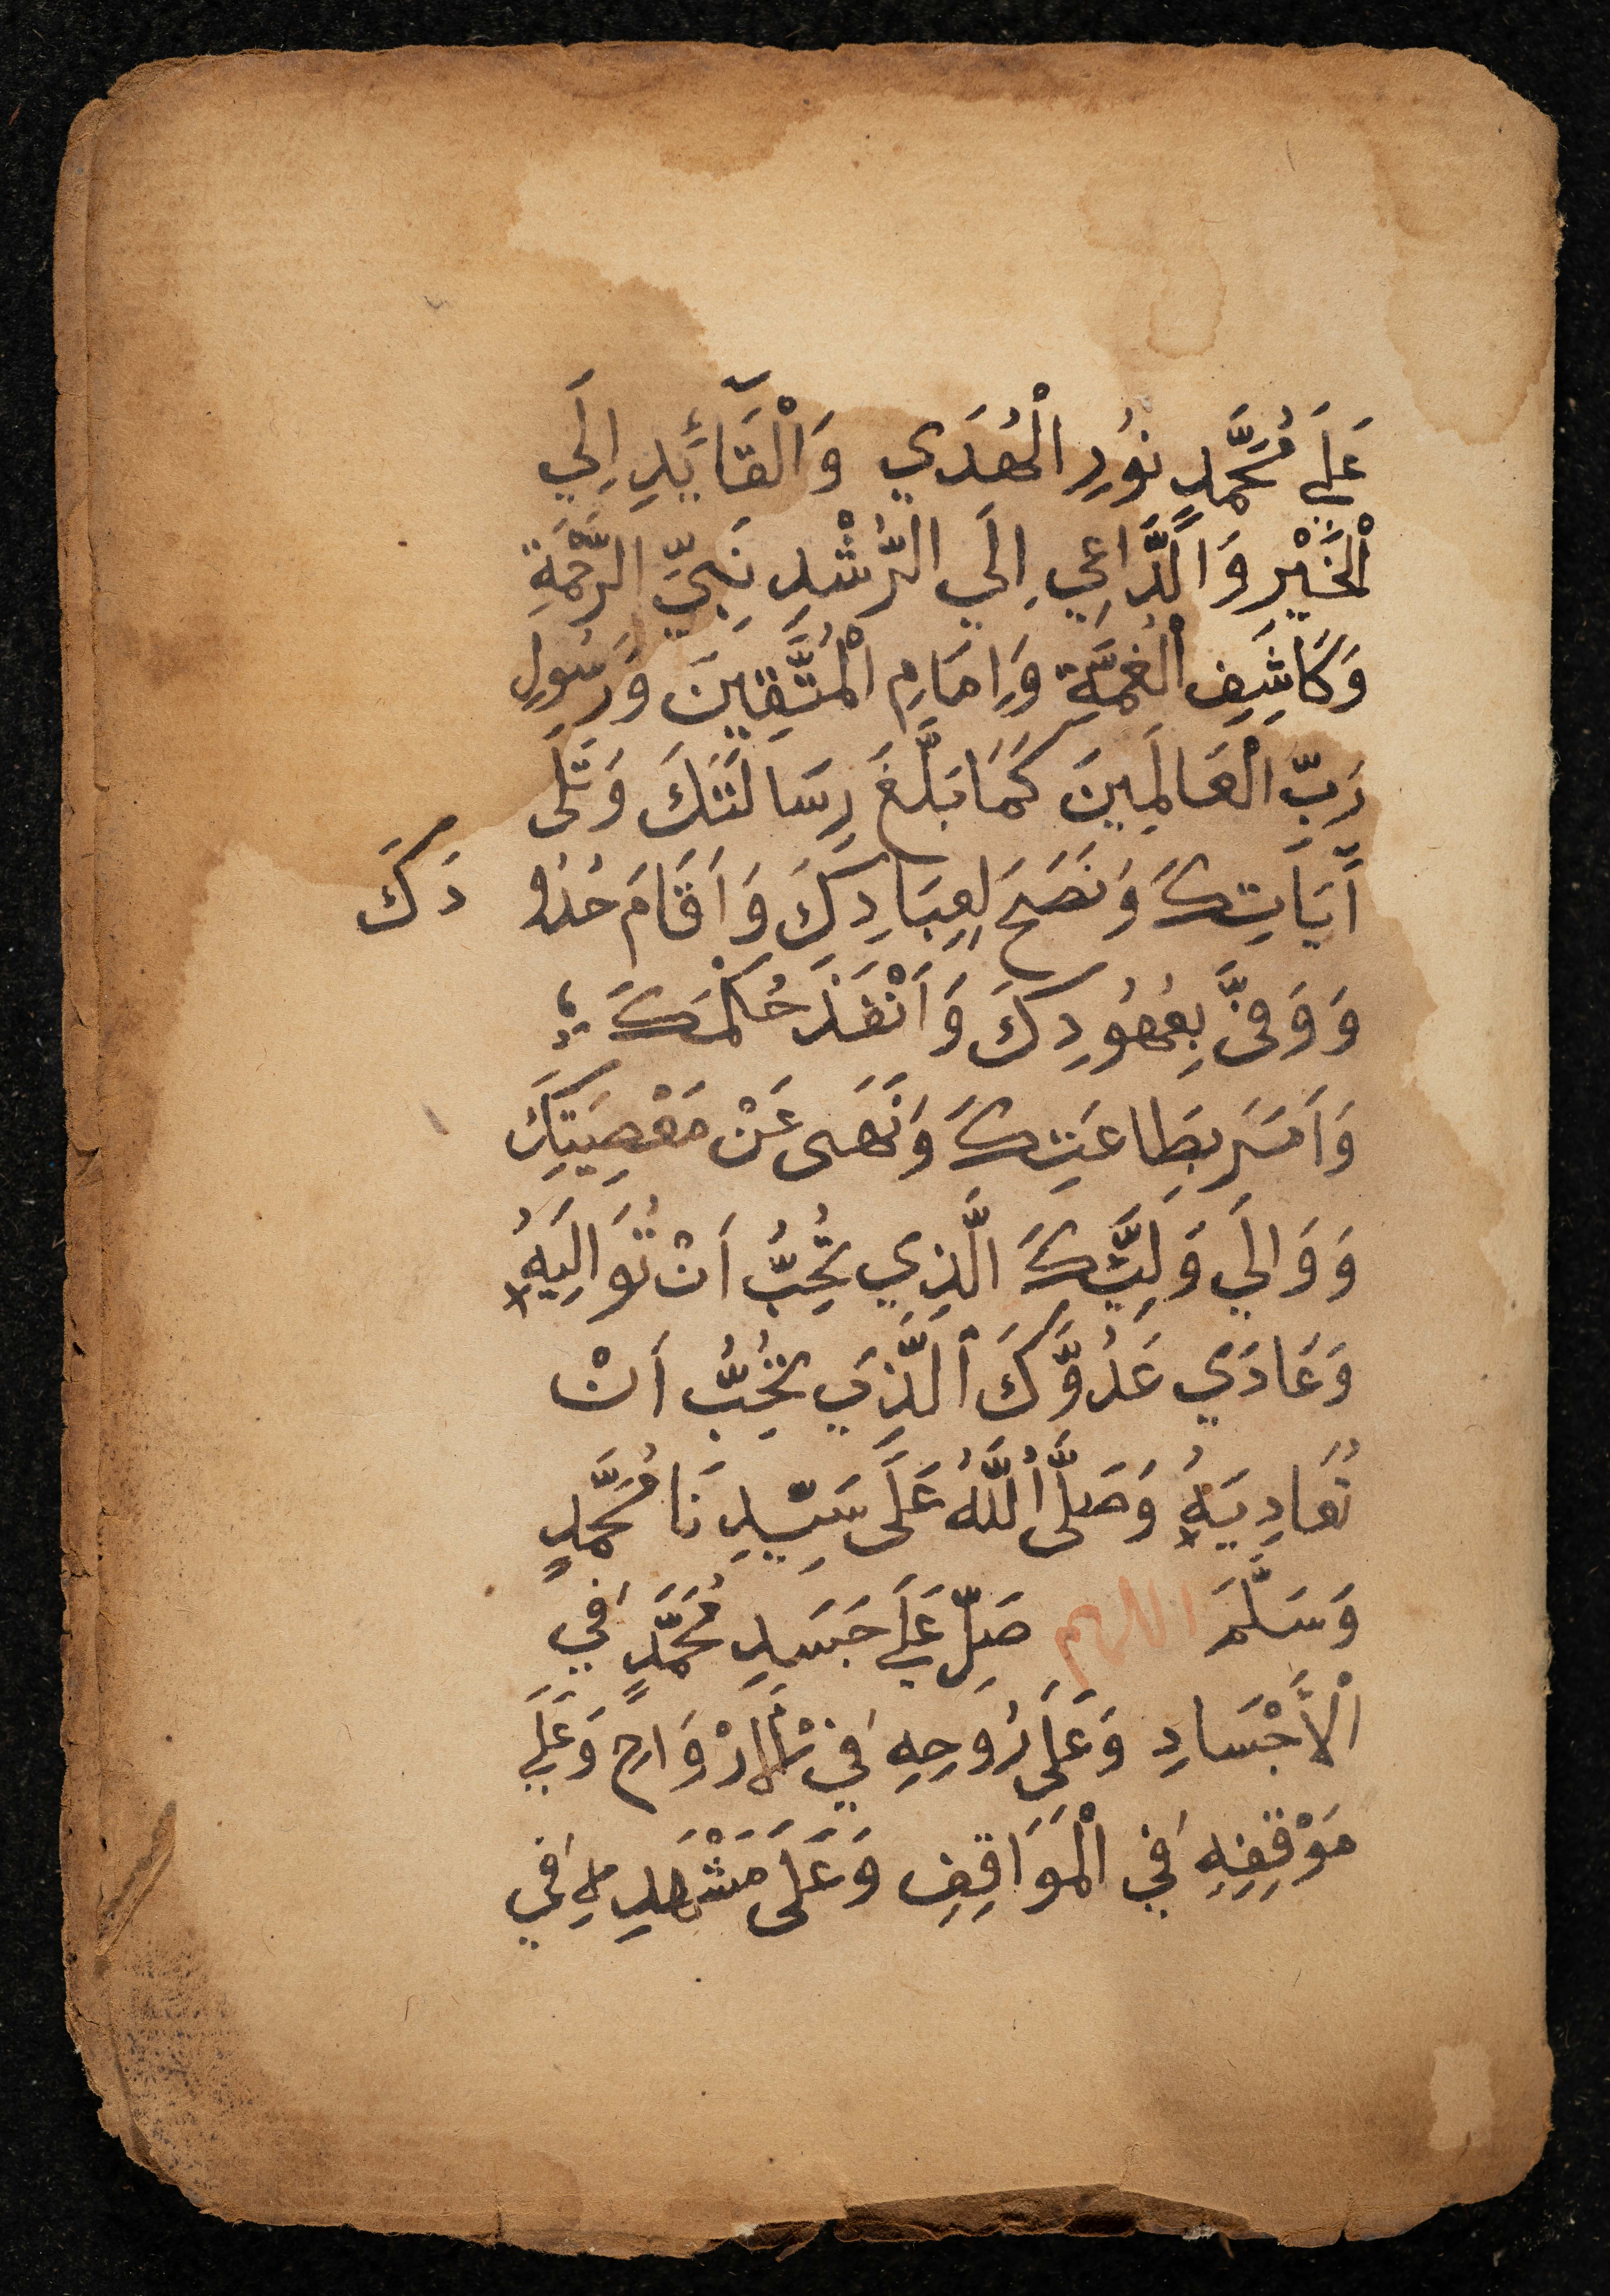 عَلَے مُحَمَّدٍ نُورِ الْهُدَي وَالْقَآئِدِ اِلَي
الْخَيْرِ وَالدَّاعِي اِلَي الرُّشْدِ نَبِيِّ الرَّحْمَةِ
وَكَاشِفِ الْغُمَّةِ وَاِمَامِ الْمُتَّقِينَ وَرَسُولِ
رَبِّ الْعَالَمِينَ كَمَا بَلَّغَ رِسَالَتَكَ وَتَلَى
آيَاتِكَ وَنَصَحَ لِعِبَادِكَ وَاَقَامَ حُدُو دَكَ
وَوَفَّى بِعُهُودِكَ وَاَنْفَذَ حُكْمَكَ
وَاَمَرَ بِطَاعَتِكَ وَنَهَى عَنْ مَعْصِيَتِكَ
وَوَالَي وَلِيَّكَ الَّذِي تُحِبُّ اَنْ تُوَالِيَهُ
وَعَادَي عَدُوَّكَ الَّذِي تُحِبُّ اَنْ
تُعَادِيَهُ وَصَلَّى اللَّهُ عَلَى سَيِّدِنَا مُحَمَّدٍ
وَسَلَّمَ اللهم صَلِّ عَلَے جَسَدِ مُحَمَّدٍ فِي
الْاَجْسَادِ وَعَلَى رُوحِهِ فِي الْاَرْوَاحِ وَعَلَے
مَوْقِفِهِ فِي الْمَوَاقِفِ وَعَلَى مَشْهَدِهِ فِي